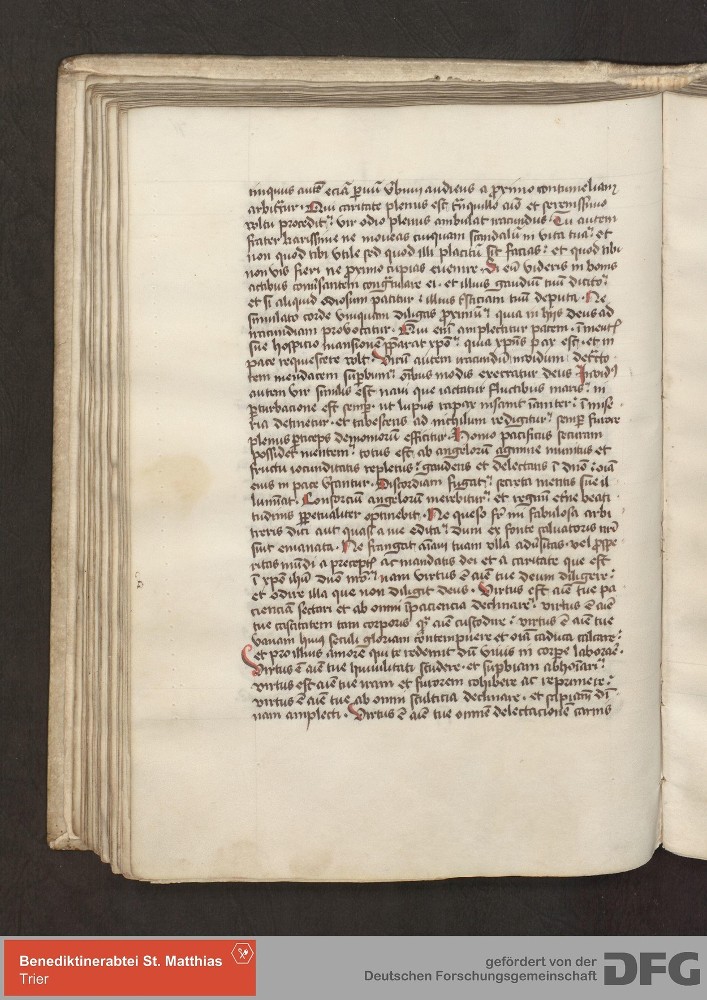 arbitratur. Qui caritate plenus est tranquillo animo et serenissimo
voltu procedit. vir odio plenus ambulat iracundus. Tu autem
frater karissime ne moveas cuiquam scandalum in vita tua. et
non quod tibi utile sed quod illi placitum sit facias. et quod tibi
non vis fieri ne proximo cupias evenire. Si eum videris in bonis
actibus conversantem congratulare ei. et illius gaudium tuum dicito.
et si aliquid odiosum patitur illius tristiciam tuam deputa. Ne
simulato corde unquam diligas proximum. quia in hiis deus ad
iracundiam provocatur. Qui enim amplectitur pacem. in mentis
sue hospicio mansionem preparat christo. quia christus pax est. et in
pace requiescere volt. Virum autem iracundum invidum detracto
rem mendacem superbum. omnibus modis execratur deus Invidus
autem vir similis est navi que iactatur fluctibus maris. in
perturbacione est semper. ut lupus rapax insanit inaniter. in mise
ria detinetur. et tabescens ad nichilum redigitur. semper furore
plenus particeps demoniorum efficitur. Homo pacificus securam
possidet mentem. totus est ab angelorum agmine munitus et
fructu iocunditatis repletus. gaudens et delectans in domino. omnia
eius in pace versantur. Discordiam fugat. secreta mentis sue il
luminat. Consorcium angelorum merebitur. et regnum eterne beati
tudinis perpetualiter optinebit. Ne queso frater mi fabulosa arbi
treris dici aut quasi a me edita. dum ex fonte salvatoris nostri
sunt emanata. Ne frangat animam tuam ulla adversitas. vel prospe
ritas mundi a preceptis ac mandatis dei et a caritate que est
in christo ihesu domino nostro. nam virtus est anime tue deum diligere.
et odire illa que non diligit deus. Virtus est anime tue pa
cienciam sectari et ab omni inpaciencia declinare. virtus est anime
tue castitatem tam corporis quam anime custodire. virtus est anime tue
vanam huius seculi gloriam contempnere et omnia caduca calcare.
et pro illius amore qui te redemit dum vivis in corpore laborare.
Virtus est anime tue humilitati studere. et superbiam abhominari.
virtus est anime tue iram et furorem cohibere ac reprimere.
virtus est anime tue ab omni stulticia declinare. et sapienciam di
vinam amplecti. Virtus est anime tue omnem delectacionem carnis
Benediktinerabtei St. Matthias
Trier
gefördert von der
Deutschen Forschungsgemeinschaft
DFG